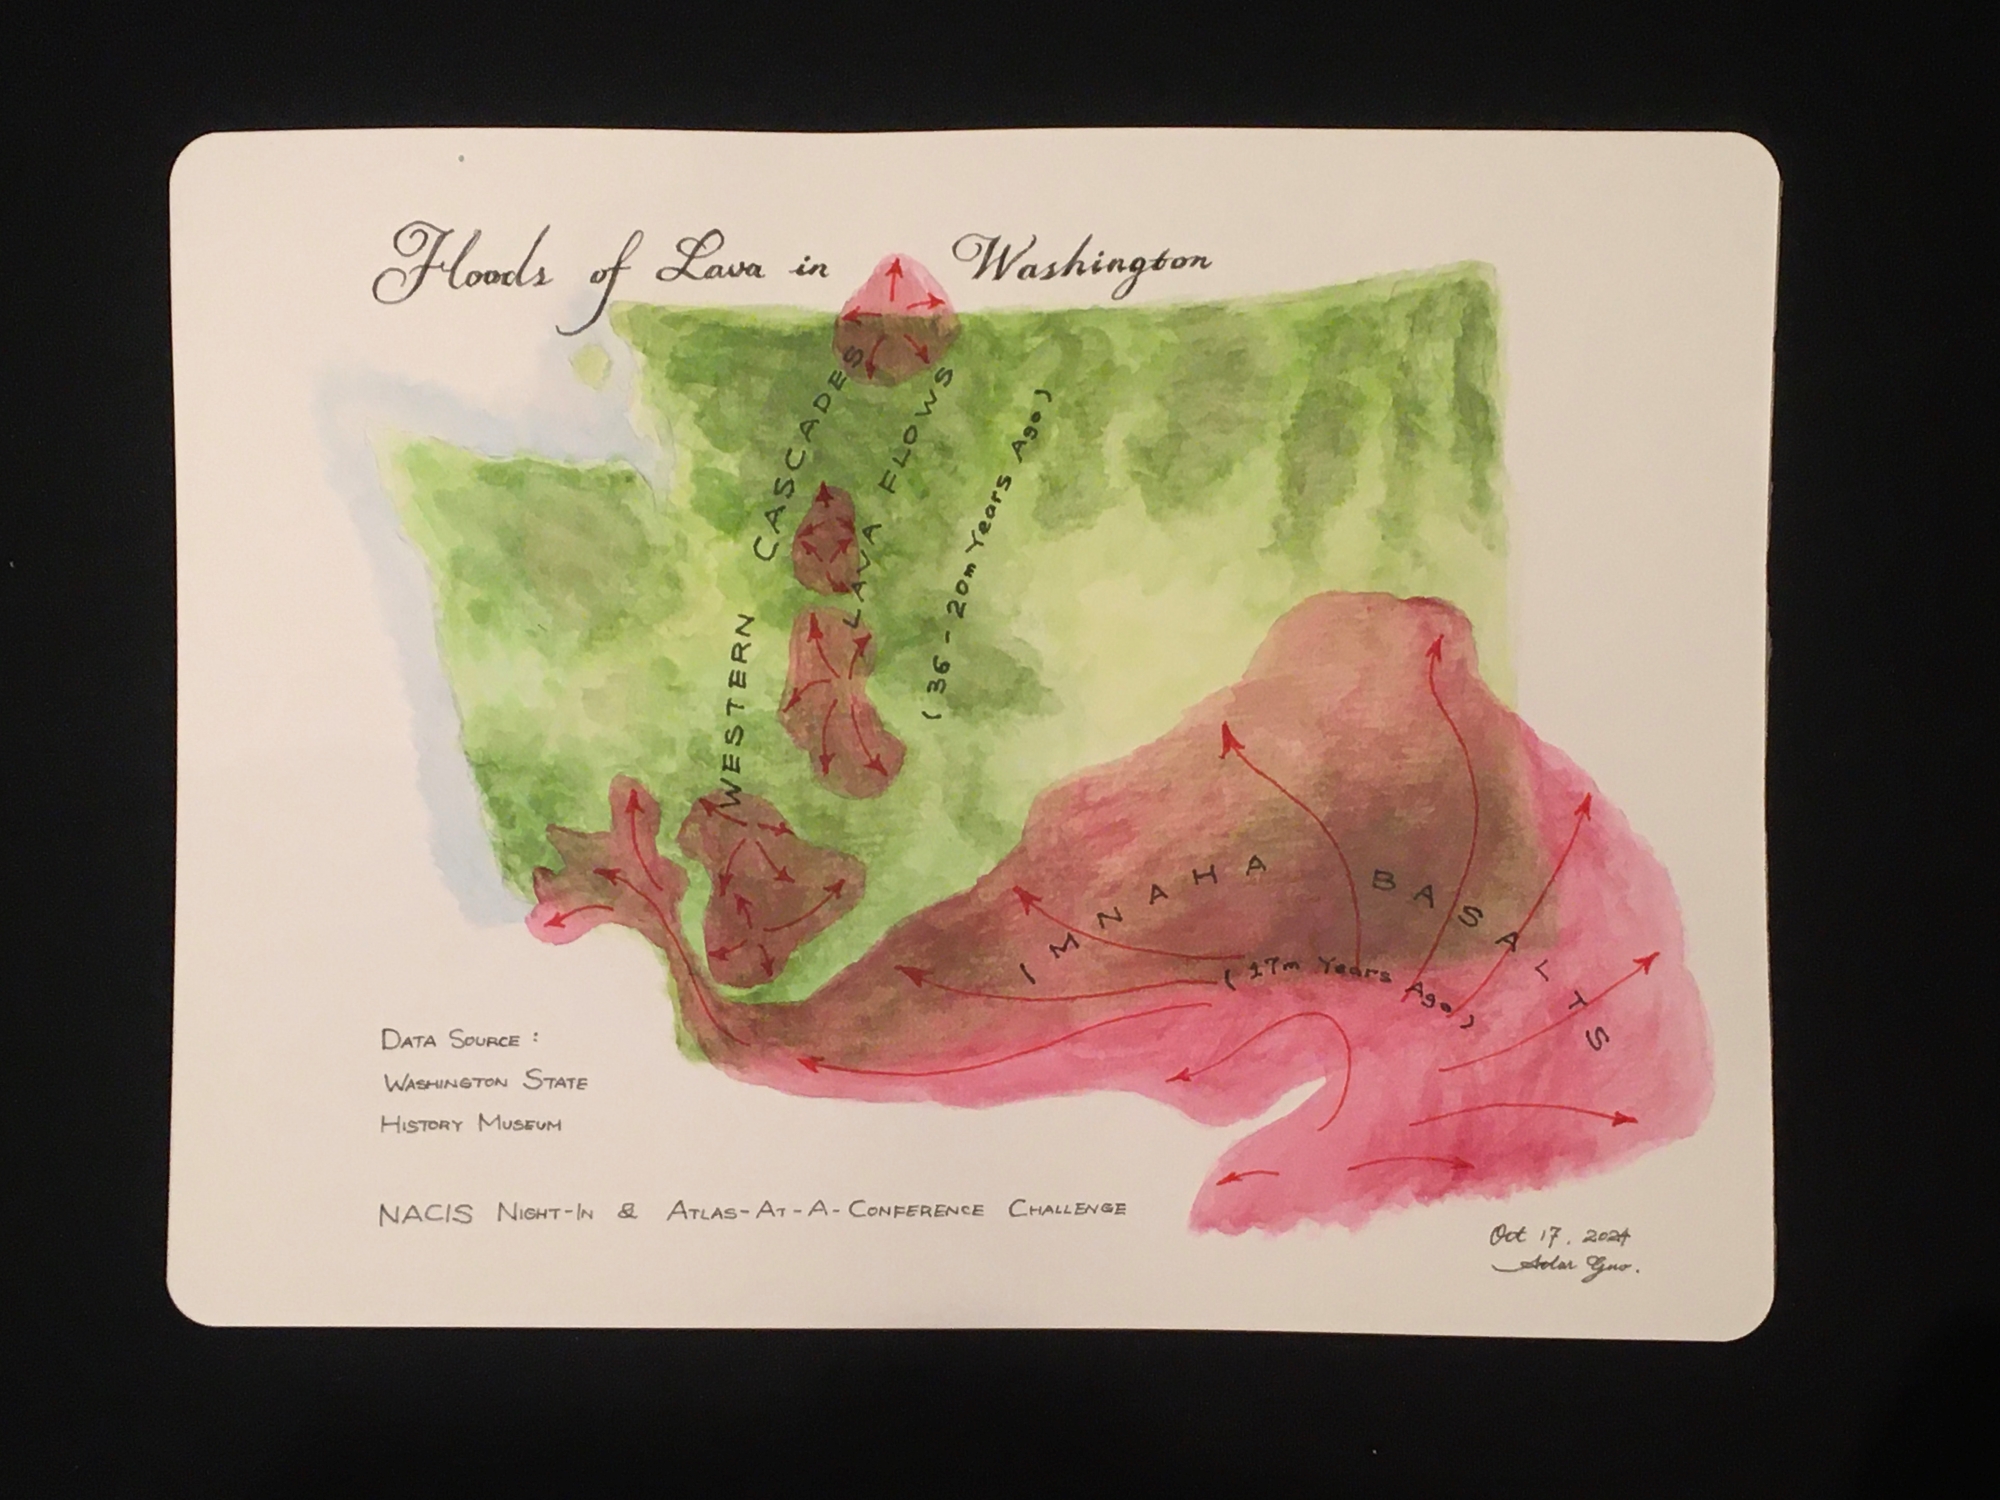 Floods of Lava in Washington
WESTERN CASCADES
LAVA FLOWS
(36-20m Years Ago)
IMNAHA BASALTS
(17m Years Ago)
DATA SOURCE:
WASHINGTON STATE
HISTORY MUSEUM
NACIS NIGHT-IN & ATLAS-AT-A-CONFERENCE CHALLENGE
Oct 17. 2024
Solar Guo.